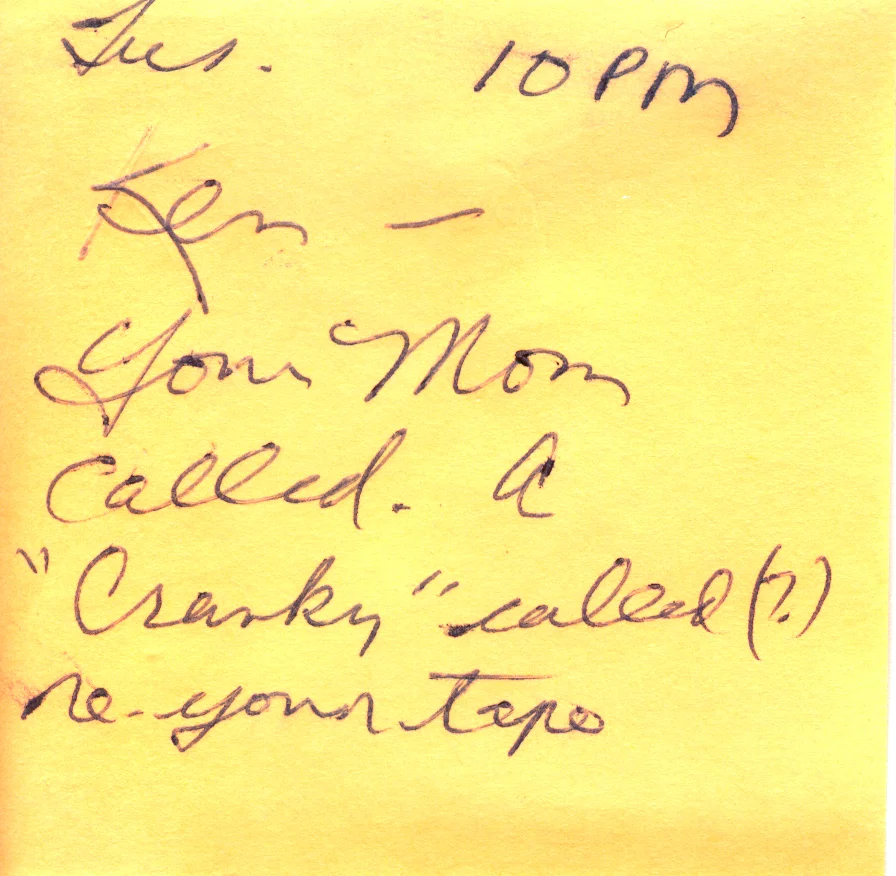 Tues. 10 PM
Ken —
Your Mom
called. A
"Cranky" called (?)
re-your tape